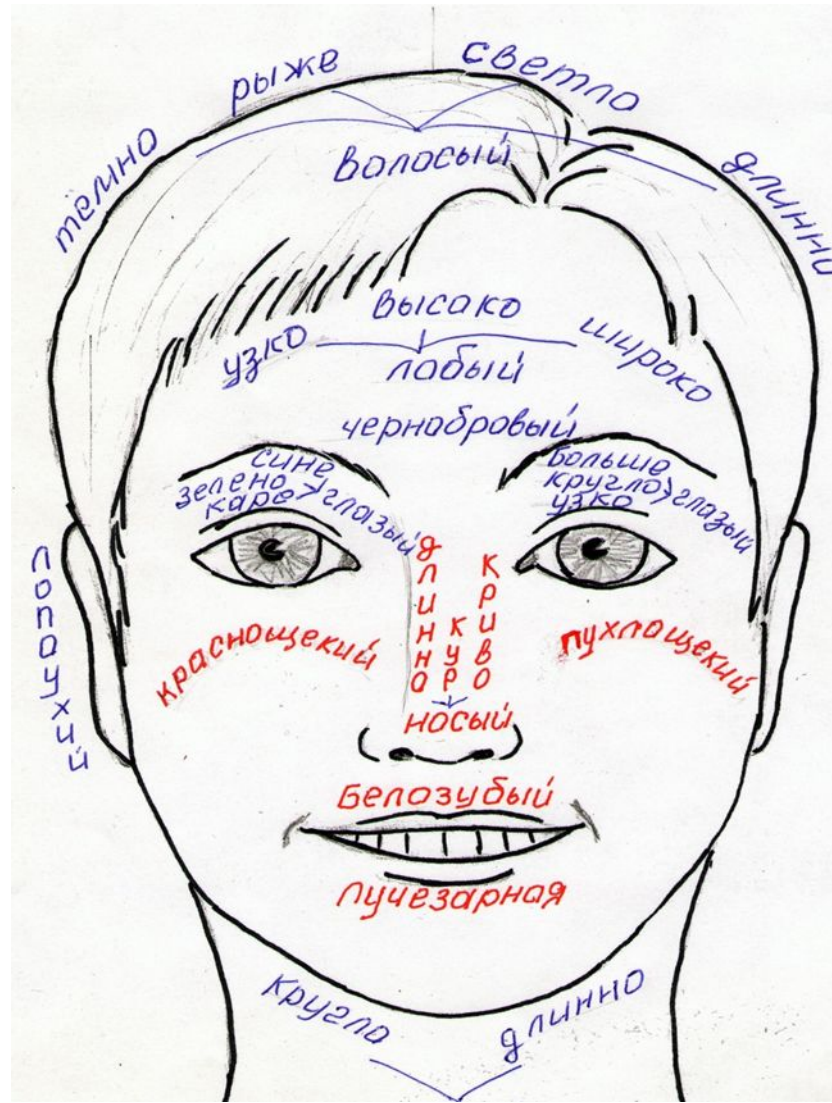 рыже
светло
тёмно
длинно
волосый
высако
узко
широко
лабый
чернабровый
сине
зелено
каре>глазый
больше
кругло>глазый
узко
лопоухий
длинно
кур
криво
носый
краснощекий
пухлащекий
Белозубый
лучезарная
кругла
длинно